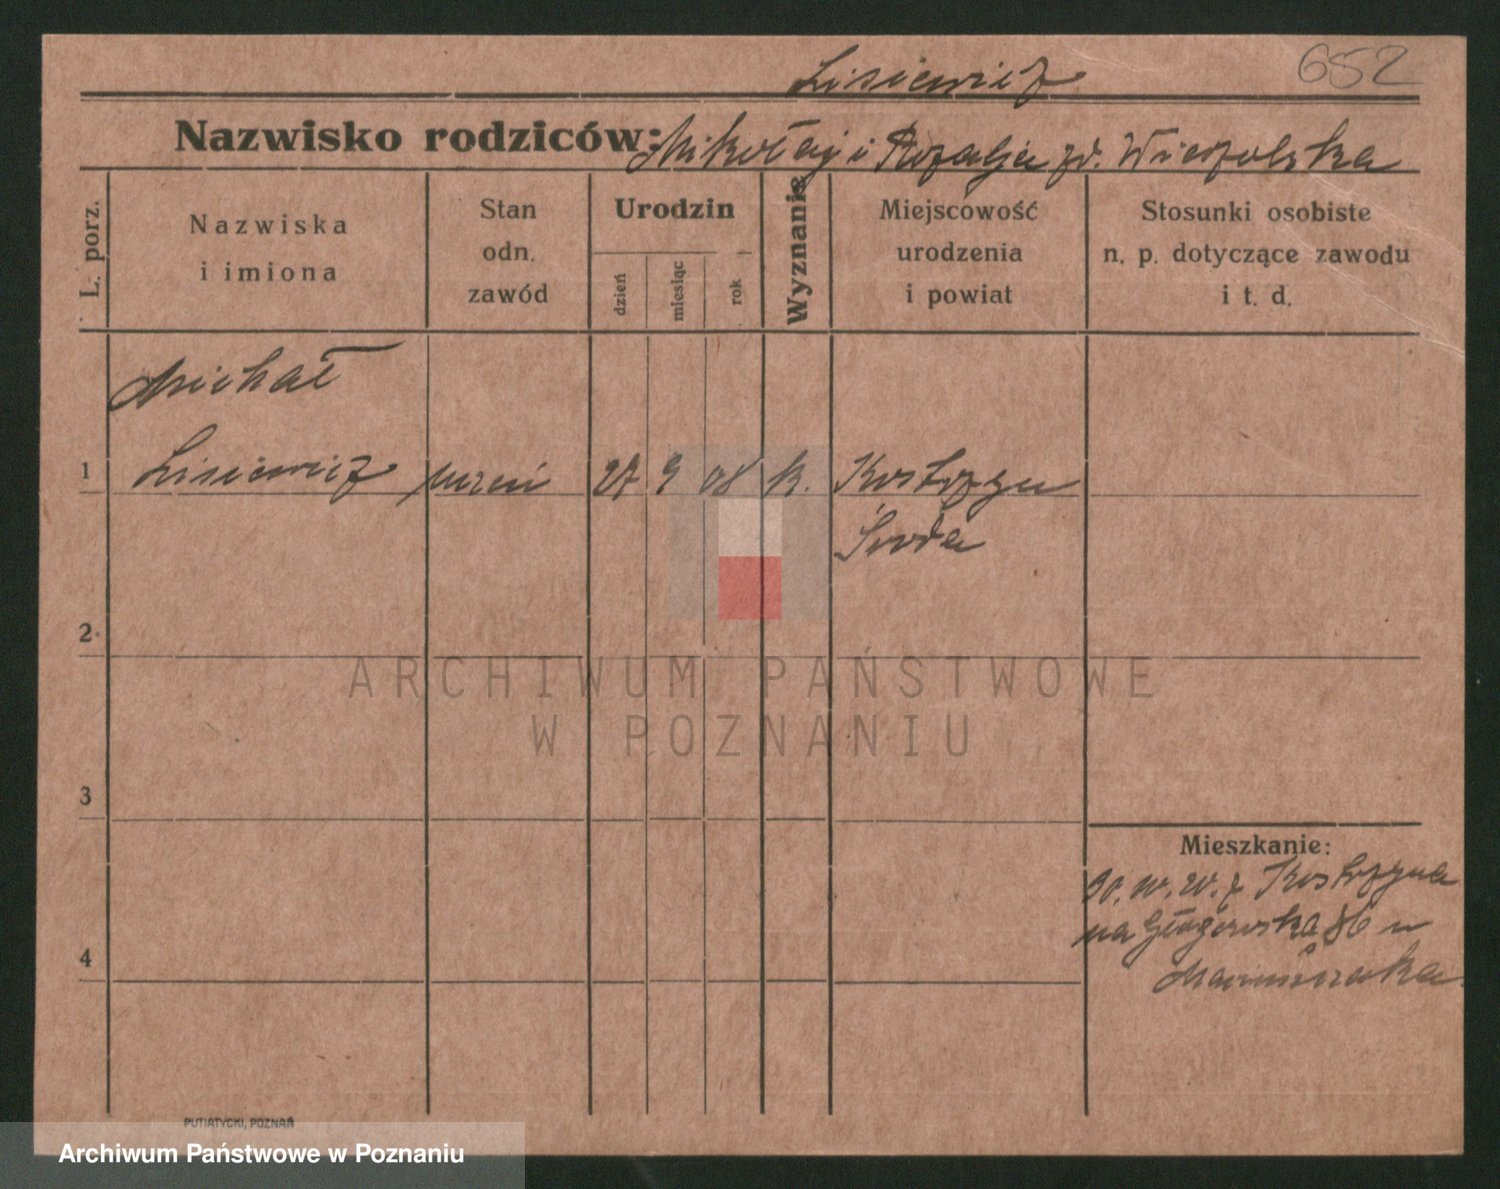 652
Lisiewicz
Nazwisko rodziców: Mikołaj i Rozalja zd. Wierzolska
L. porz.
Nazwiska i imiona
Stan odn. zawód
Urodzin
dzień
miesiąc
rok
Wyznanie
Miejscowość urodzenia i powiat
Stosunki osobiste n. p. dotyczące zawodu i t. d.
Michał
1 Lisiewicz uczeń 27 9 08 k. Kostrzyn
Środa
2
3
4
Mieszkanie:
z Kostrzyna
na Głogowska 86 u
PUTIATYCKI, POZNAŃ
ARCHIWUM PAŃSTWOWE
W POZNANIU
Archiwum Państwowe w Poznaniu